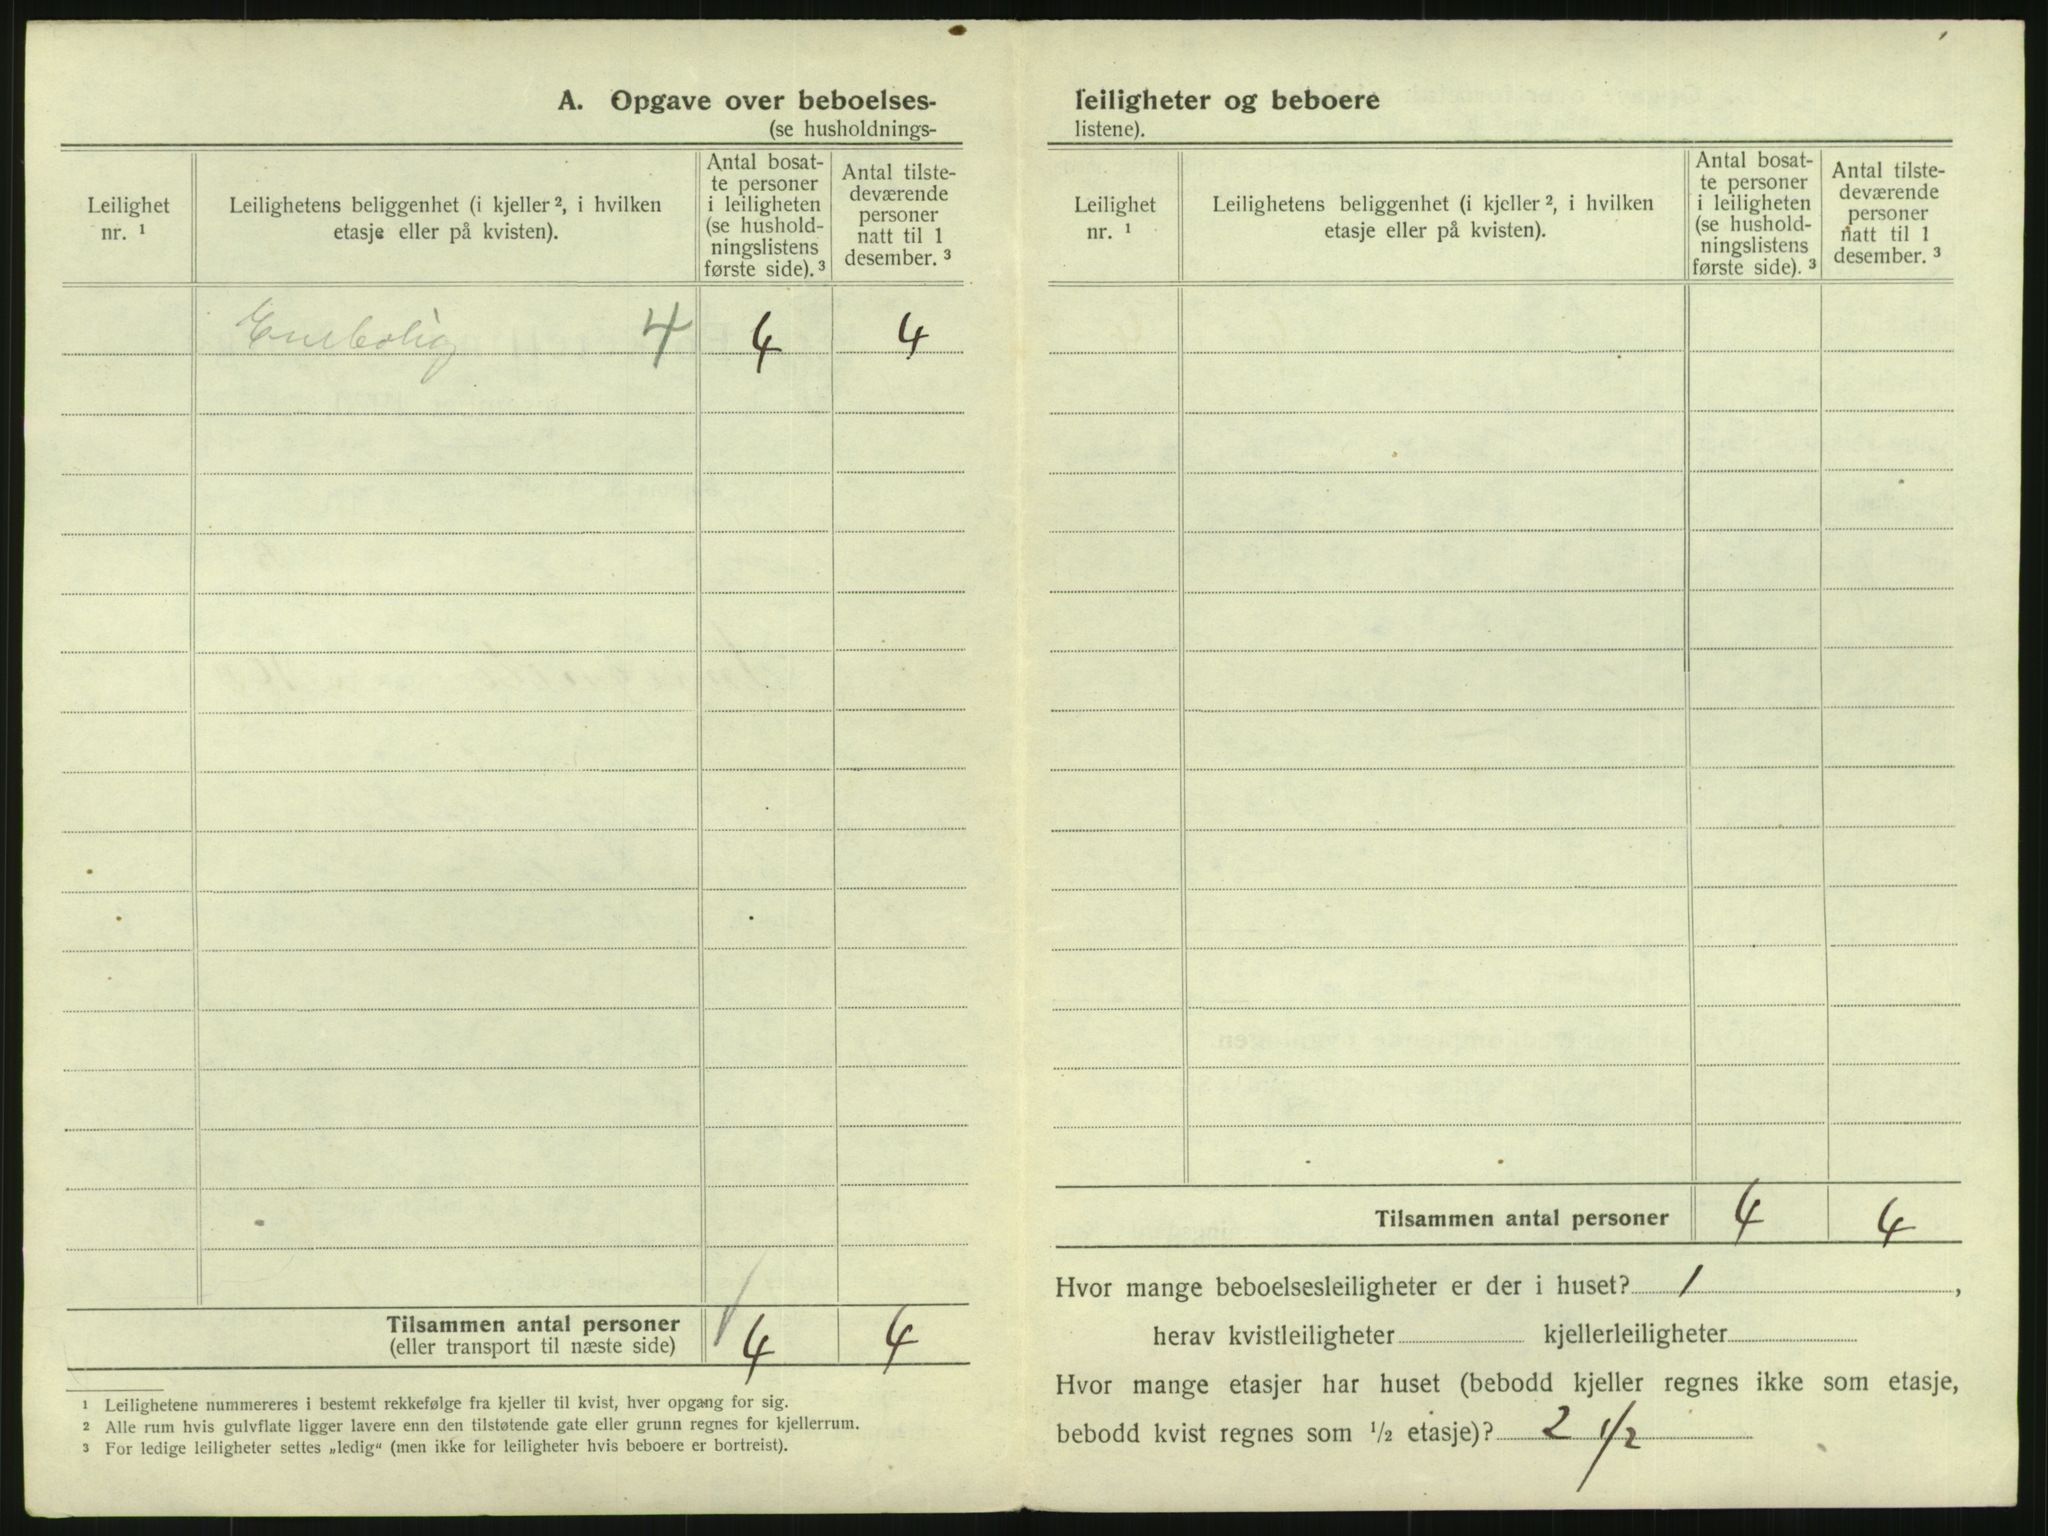 A. Opgave over beboelses-
(se husholdnings-
Leilighet
nr. 1
Leilighetens beliggenhet (i kjeller 2, i hvilken
etasje eller på kvisten).
Antal bosat-
te personer
i leiligheten
(se hushold-
ningslistens
første side). 3
Antal tilste-
deværende
personer
natt til 1
desember. 3
Enebolig 4 4 4
Tilsammen antal personer
(eller transport til næste side)
4 4
1 Leilighetene nummereres i bestemt rekkefølge fra kjeller til kvist, hver opgang for sig.
2 Alle rum hvis gulvflate ligger lavere enn den tilstøtende gate eller grunn regnes for kjellerrum.
3 For ledige leiligheter settes „ledig“ (men ikke for leiligheter hvis beboere er bortreist).
leiligheter og beboere
listene).
Leilighet
nr. 1
Leilighetens beliggenhet (i kjeller 2, i hvilken
etasje eller på kvisten).
Antal bosat-
te personer
i leiligheten
(se hushold-
ningslistens
første side). 3
Antal tilste-
deværende
personer
natt til 1
desember. 3
Tilsammen antal personer 4 4
Hvor mange beboelsesleiligheter er der i huset? 1,
herav kvistleiligheter kjellerleiligheter
Hvor mange etasjer har huset (bebodd kjeller regnes ikke som etasje,
bebodd kvist regnes som 1/2 etasje)? 2 1/2